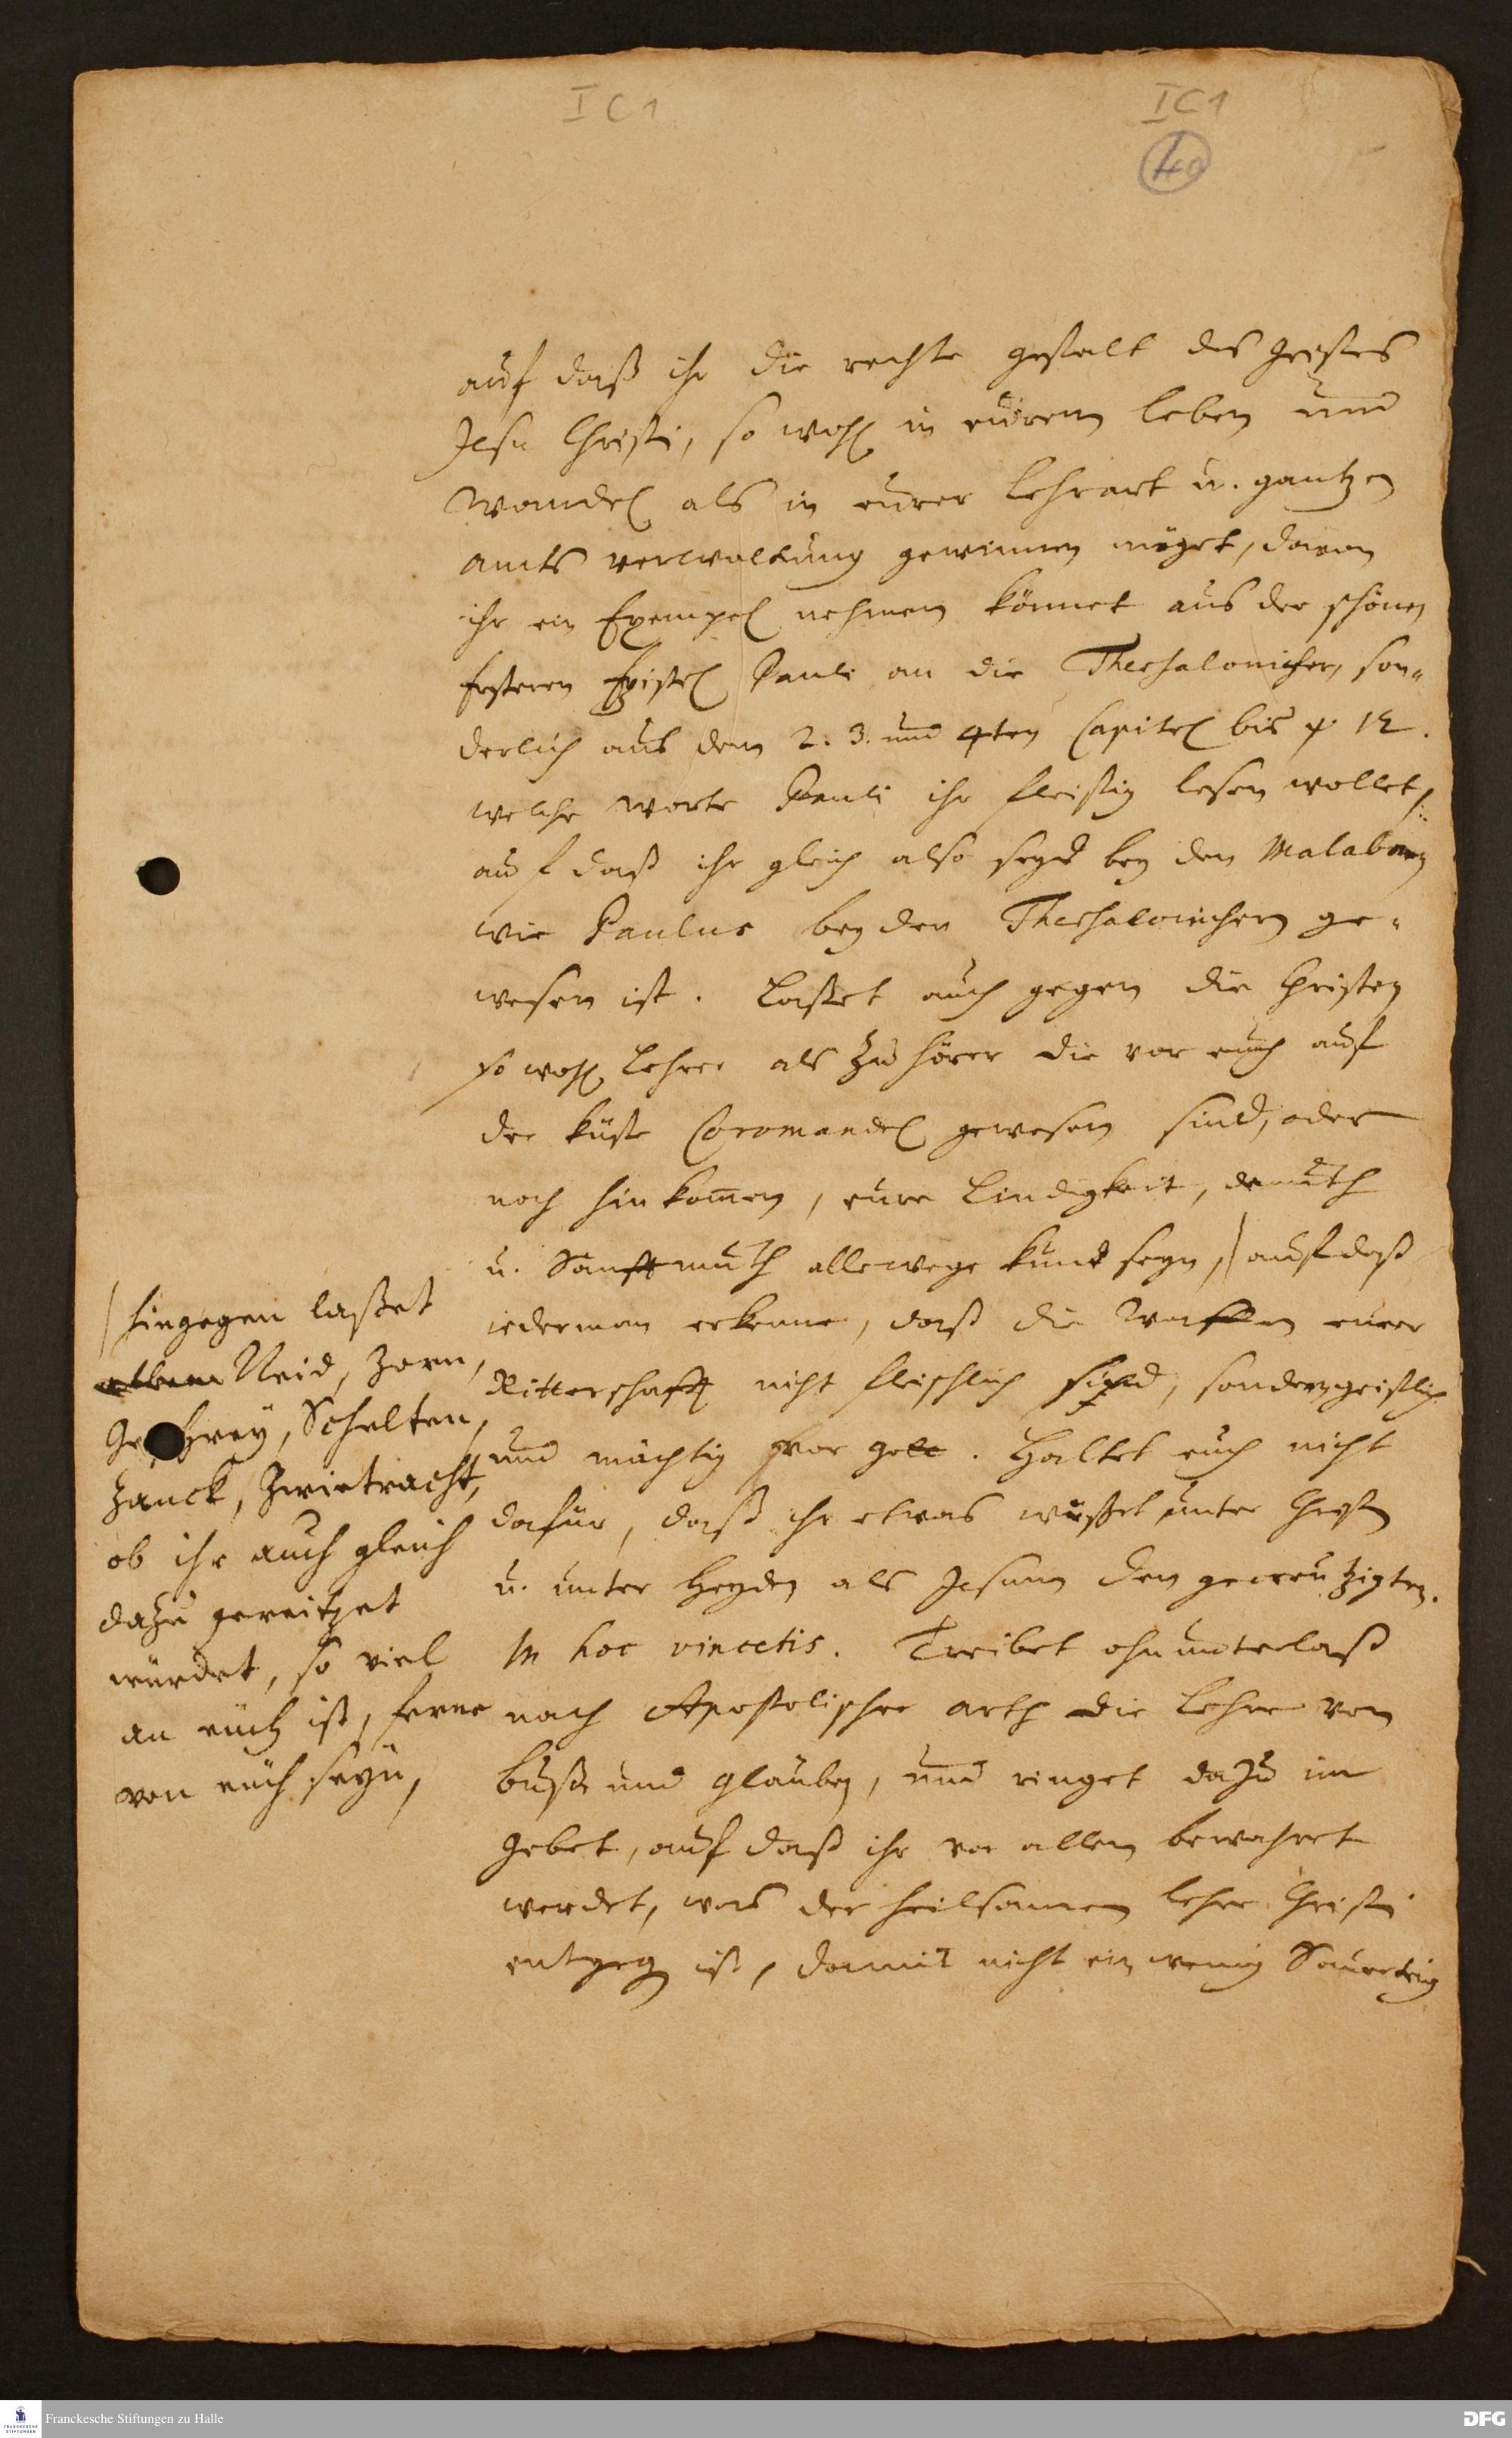 I C 1
I C 1
40
auf daß ihr die rechte gestalt des geistes
Jesu Christi, so wohl in eurem leben und
wandel als in eurer lehrart u. gantzen
amts verwaltung gewinnen möget, davon
ihr ein Exempel nehmen könnet aus der schönen
ersteren Epistel Pauli an die Thessalonicher, son„
derlich aus dem 2. 3. und 4ten Capitel bis 12.
welche worte Pauli ihr fleißig lesen wollet,
auf daß ihr gleich also seyd bey den Malabaren
wie Paulus bey den Thessalonichern ge„
wesen ist. Laßet auch gegen die Christen
so wohl Lehrer als Zuhörer die vor euch auf
der küste Coromandel gewesen sind, oder
noch hin kommen, eure Lindigkeit, demuth
u. Sanftmuth allewege kund seyn, / auf daß
iederman erkenne, daß die Waffen eurer
Ritterschafft nicht fleischlich sind, sondern geistlich
und mächtig vor gott. Haltet euch nicht
dafür, daß ihr etwas wüßtet unter Christen
u. unter Heyden als Jesum den gecreutzigten.
In hoc vincetis. Treibet ohn unterlaß
nach Apostolischer arth die Lehre von
buße und glauben, und ringet dazu im
gebet, auf daß ihr vor allem bewahret
werdet, was der heilsamen lehre Christi
entgegen ist, damit nicht ein wenig Sauerteig
/ hingegen laßet
Neid, Zorn,
Geschrey, Schelten,
Zanck, Zwietracht,
ob ihr auch gleich
dazu gereitzet
würdet, so viel
an euch ist, ferne
von euch seyn,
FRANCKESCHE STIFTUNGEN
Franckesche Stiftungen zu Halle
DFG